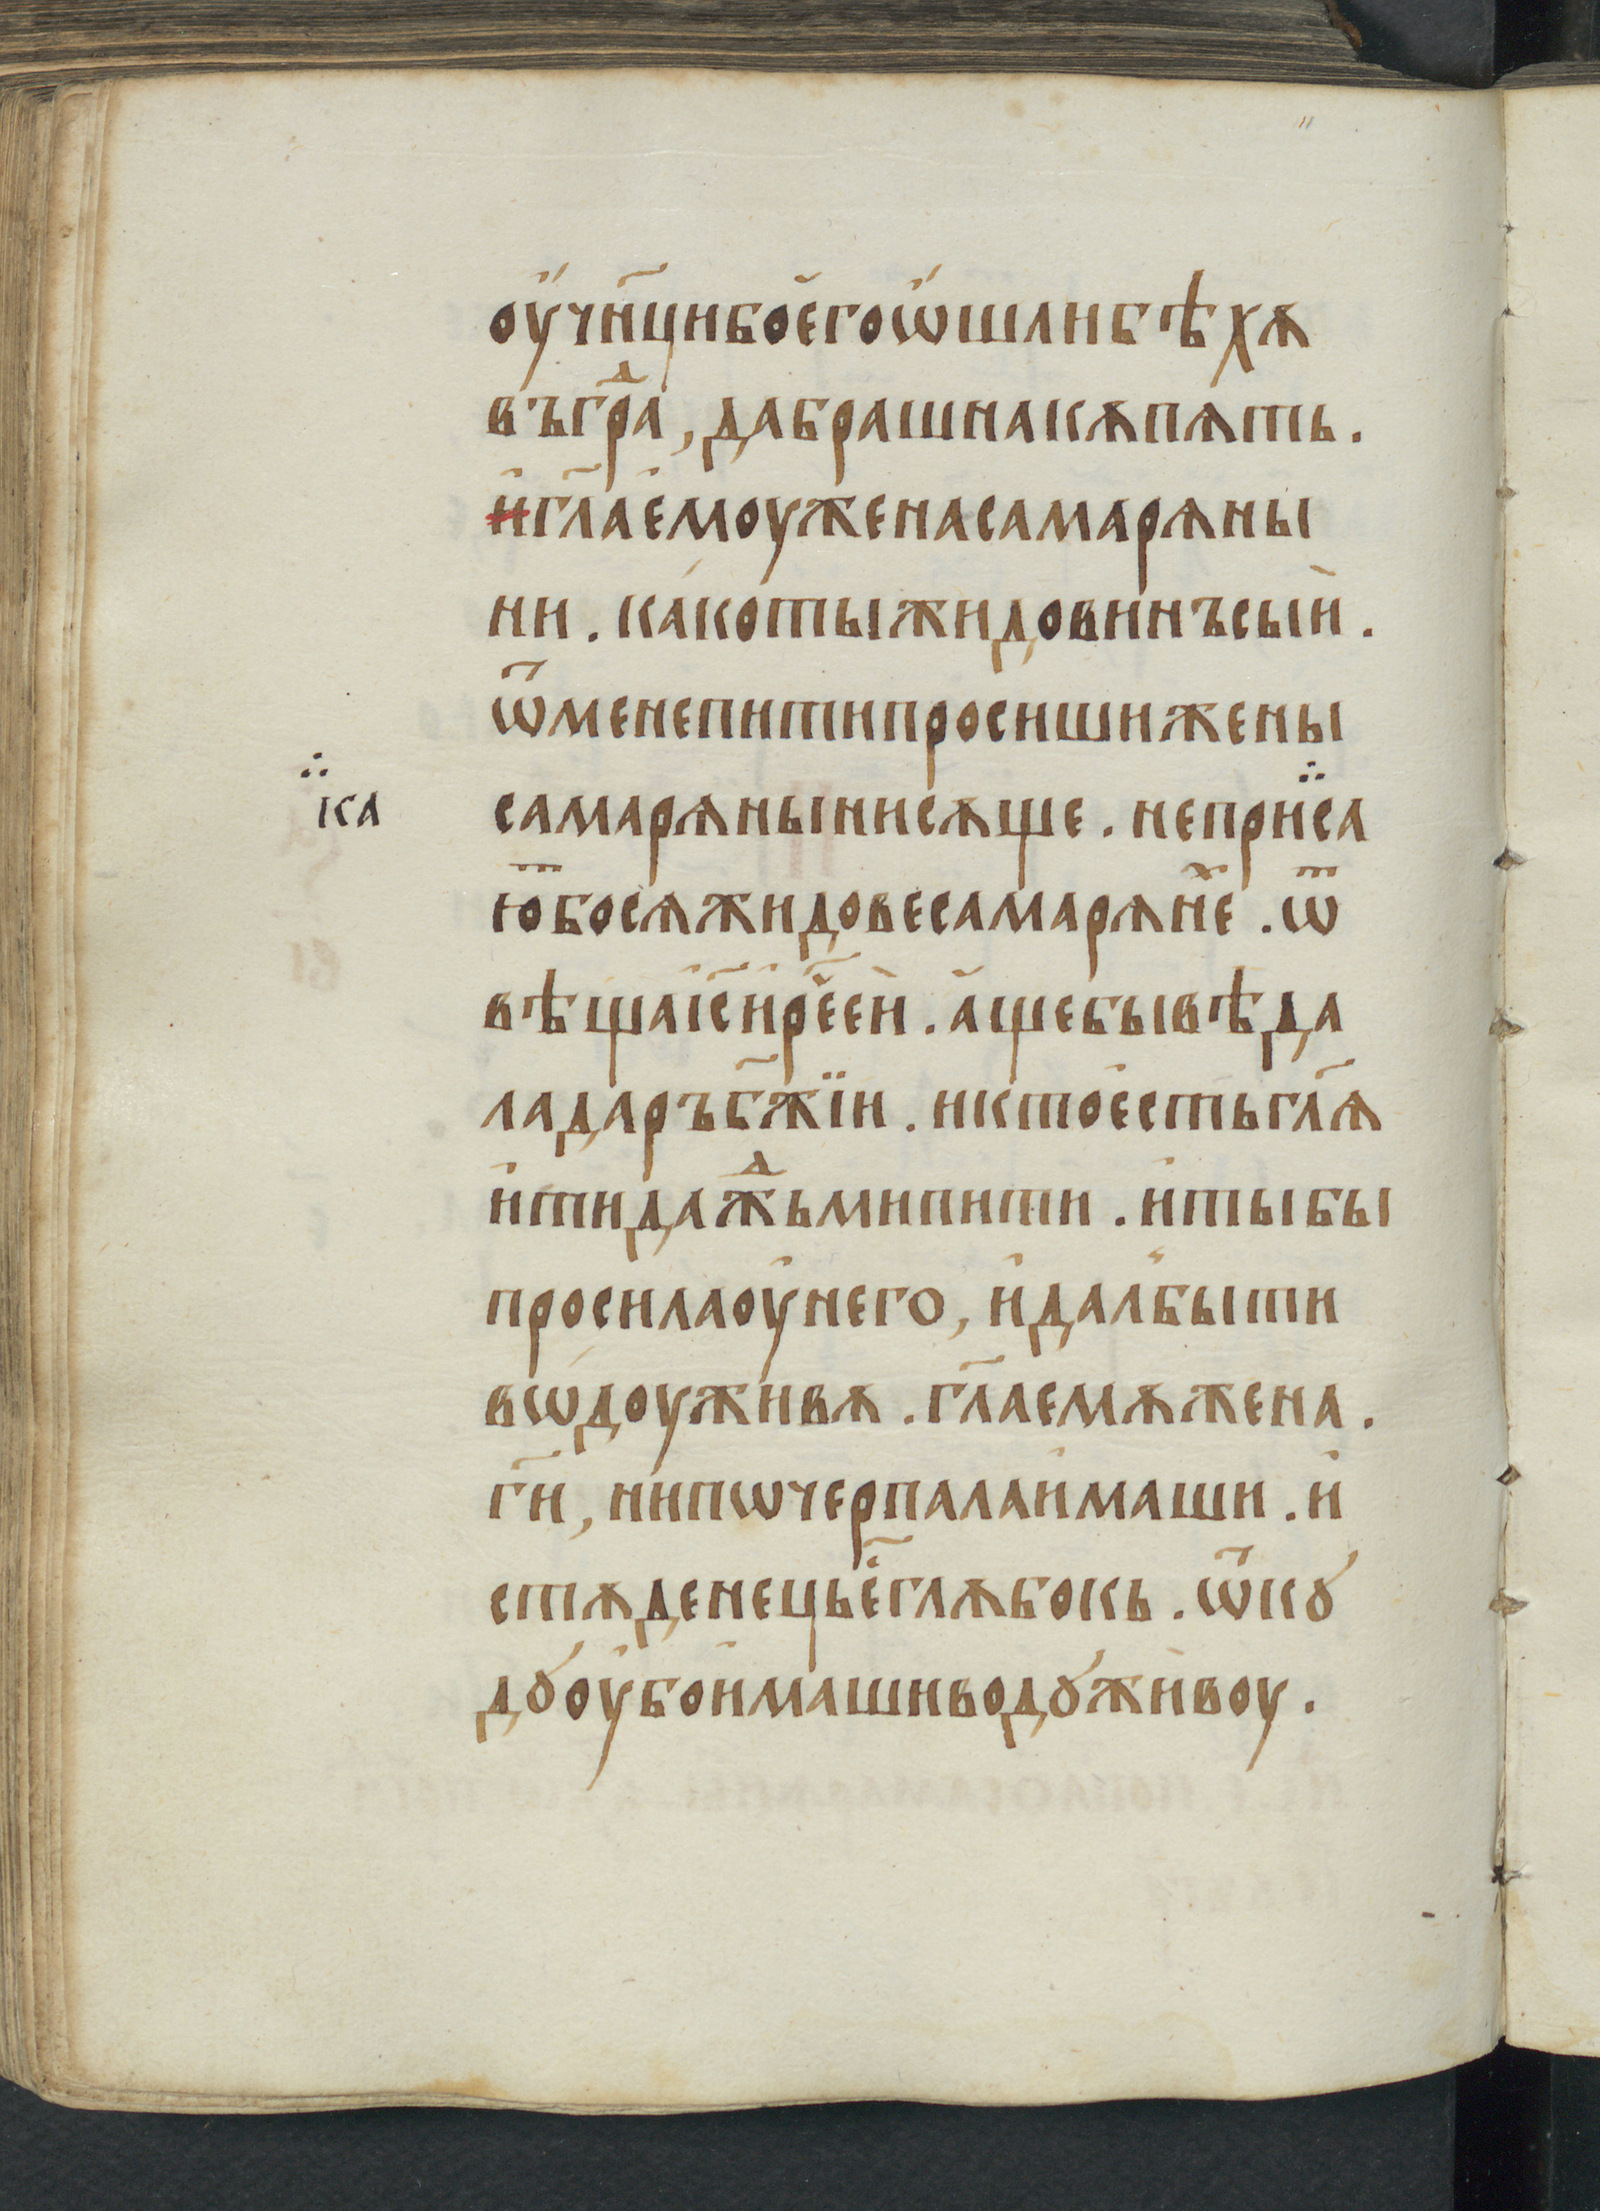 оу҆чн҃цибоегоѿшлибѣхѫ
въгра҇ⷣ, дабрашнакѫпѧть.
и҆гл҃аемоуженасамарѧны
ни. ка́котыжидовинъсый.
ѿменепитипросишижены
самарѧнынисѫще. неприса
ка
ю҆босѧжидовесамарѧне. ѿ
вѣщаіс҃ирече҃ей. а҆щебывѣда
ладаръбж҃їи. иктоестьгл҃ѧ
и҆тидаⷤдьмипити. и҆тыбы
просилаоу҆него, и҆далбыти
вѡдоуживѫ. гл҃аемѫжена.
ги҃, нипѡчерпалаи҆маши. и҆
стѫденецье҃глѫбокь. ѿкꙋ
дꙋоу҆бои҆машиводꙋживоу.